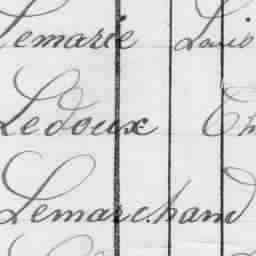 Lemarié Louis
Ledoux
Lemarchand